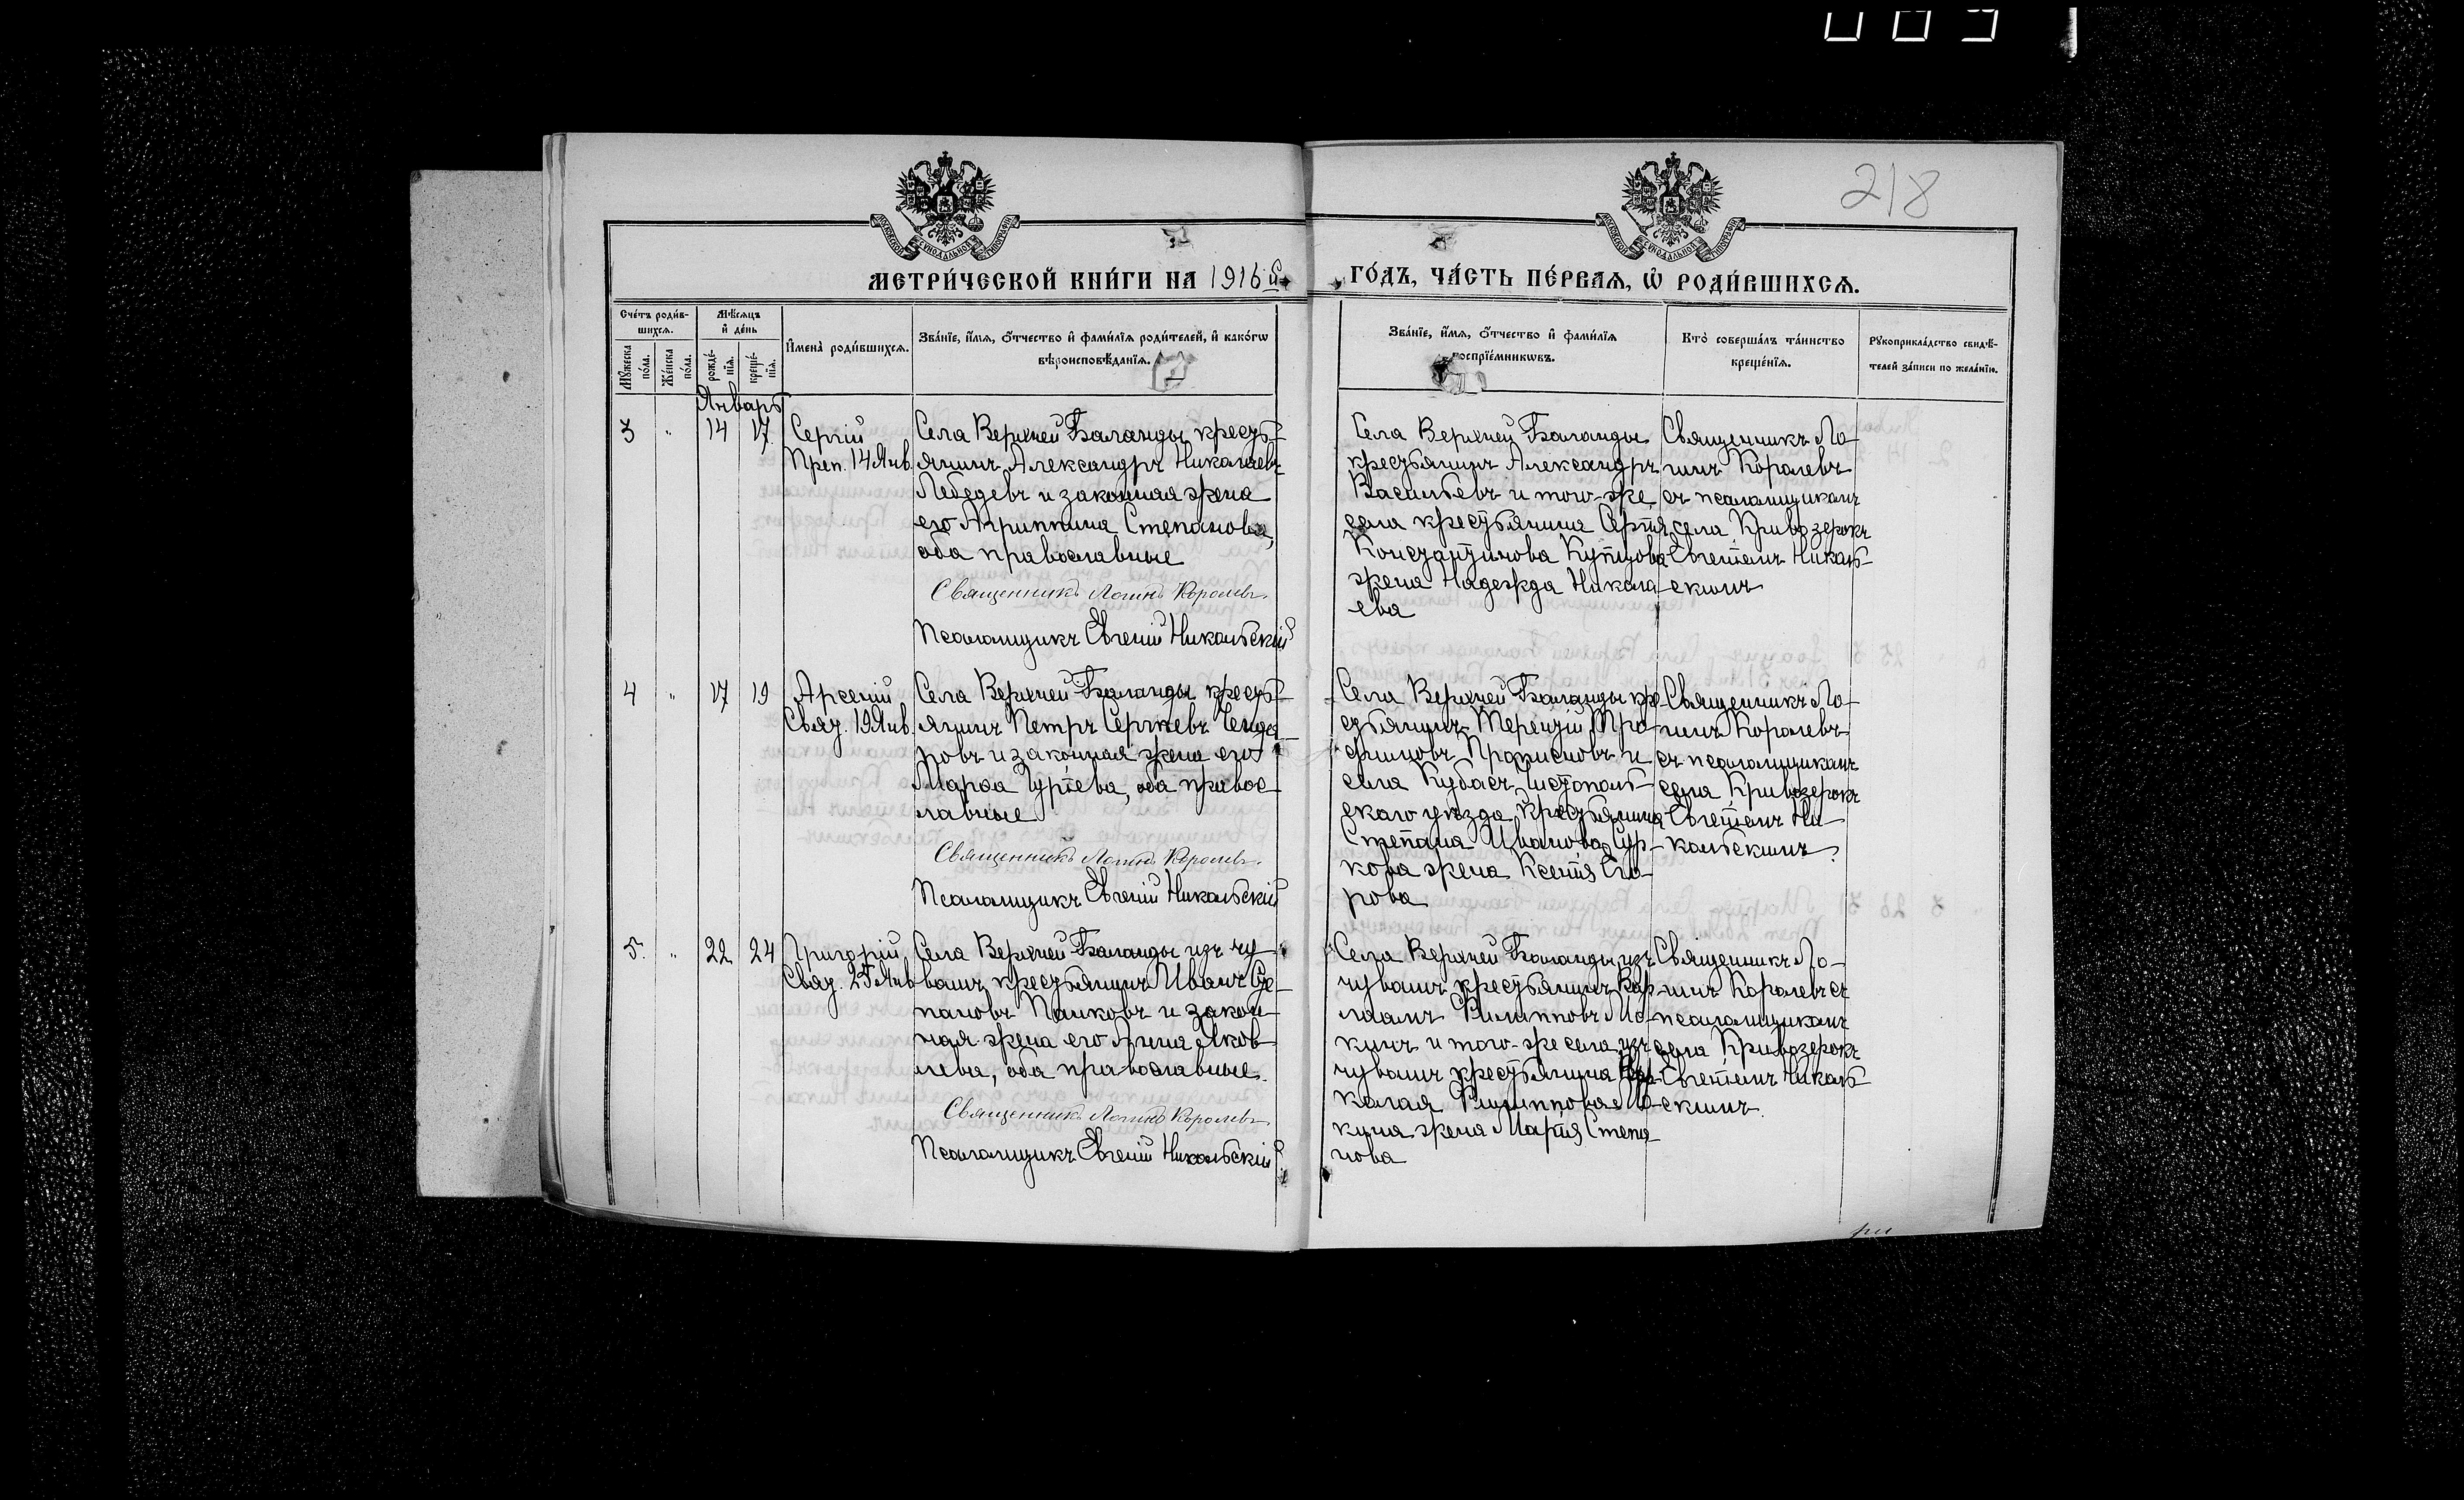 218
МЕТРИ́ЧЕСКОЙ КНИ́ГИ НА 1916 й
ГО́ДЪ, ЧА́СТЬ ПЕ́РВАЯ, Ѡ РОДИ́ВШИХСЯ.
Сче́тъ роди́в-
шихся.
Мѣ́сяцъ
и де́нь
Имена̀ роди́вшихся.
Зва́нїе, и́мя, о́тчество и фами́лїя роди́телей, и како́гѡ
вѣроисповѣ́данїя.
Му́жеска
по́ла.
Же́нска
по́ла.
рожде́-
нїя.
креще́-
нїя.
Зва́нїе, и́мя, о́тчество и фами́лїя
воспрїе́мникѡвъ.
Кто̀ соверша́лъ та́инство
креще́нїя.
Рукоприкла́дство свидѣ́-
телей за́писи по жела́нїю.
Январь
3 " 14 17
Сергій
Преп. 14 Янв.
Села Верхней Баланды кресть-
янинъ Александръ Николаевъ
Лебедевъ и законная жена
его Агриппина Степанова,
оба православные
Священникъ Логинъ Королевъ
Псаломщикъ Евгеній Никольскій
Села Верхней Баланды
крестьянинъ Александръ
Васильевъ и того-же
села крестьянина Сергія
Константинова Купцова
жена Надежда Никола-
ева
Священникъ Ло-
гинъ Королевъ
съ псаломщикомъ
села Кривозерокъ
Евгеніемъ Николь-
скимъ
4 " 17 19
Арсеній
Свят. 19 Янв.
Села Верхней Баланды кресть-
янинъ Петръ Сергѣевъ
ровъ и законная жена его
Марѳа Гурьева, оба правос-
лавные
Священникъ Логинъ Королевъ.
Псаломщикъ Евгеній Никольскій
Села Верхней Баланды кре-
стьянинъ Терентій Тро-
фимовъ и
села Кубасъ Чистополь-
скаго уѣзда крестьянина
Степана Иванова
жена Ксенія Его-
рова
Священникъ Ло-
гинъ Королевъ
съ псаломщикомъ
села Кривозерокъ
Евгеніемъ Ни-
кольскимъ.
5. " 22 24
Григорій
Свят. 25 Янв.
Села Верхней Баланды изъ чу-
вашъ крестьянинъ Иванъ Сте-
пановъ Паиковъ и закон-
ная жена его Анна Яков-
лева, оба православные.
Священникъ Логинъ Королевъ
Псаломщикъ Евгеній Никольскій
Села Верхней Баланды изъ
чувашъ крестьянинъ Вар-
лаамъ Филипповъ Мо-
кинъ и того-же села изъ
чувашъ крестьянина Ни-
колая Филиппова Мо-
кина жена Марія Степа-
нова
Священникъ Ло-
гинъ Королевъ съ
псаломщикомъ
села Кривозерокъ
Евгеніемъ Николь-
скимъ.